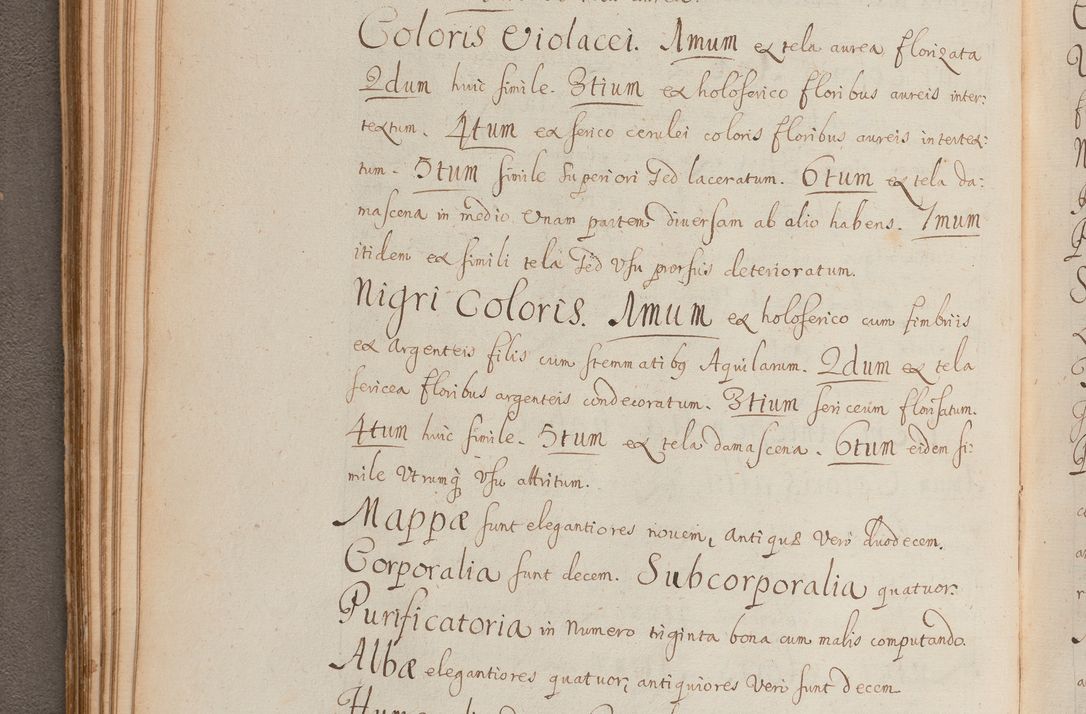 Coloris Violacei. 1mum ex tela aurea florizata
2dum huic simile. 3tium ex holoserico floribus aureis inter:
textum. 4tum ex serico cerulei coloris floribus aureis intertex:
tum. 5tum simile superiori sed laceratum. 6tum ex tela da:
mascena in medio unam partem diversam ab alio habens. 7mum
itidem ex simili tela sed usu prorsus deterioratum.
Nigri Coloris. 1mum ex holoserico cum fimbriis
ex argenteis filis cum stemmatibq Aquilarum. 2dum ex tela
sericea floribus argenteis condecoratum. 3tium sericeum florisatum.
4tum huic simile. 5tum ex tela damascena. 6tum eidem si:
mile utrumq̃ usu attritum.
Mappæ sunt elegantiores novem, antiquæ verò duodecem.
Corporalia sunt decem. Subcorporalia quatuor.
Purificatoria in numero triginta bona cum malis computando.
Albæ elegantiores quatuor, antiquiores verò sunt decem